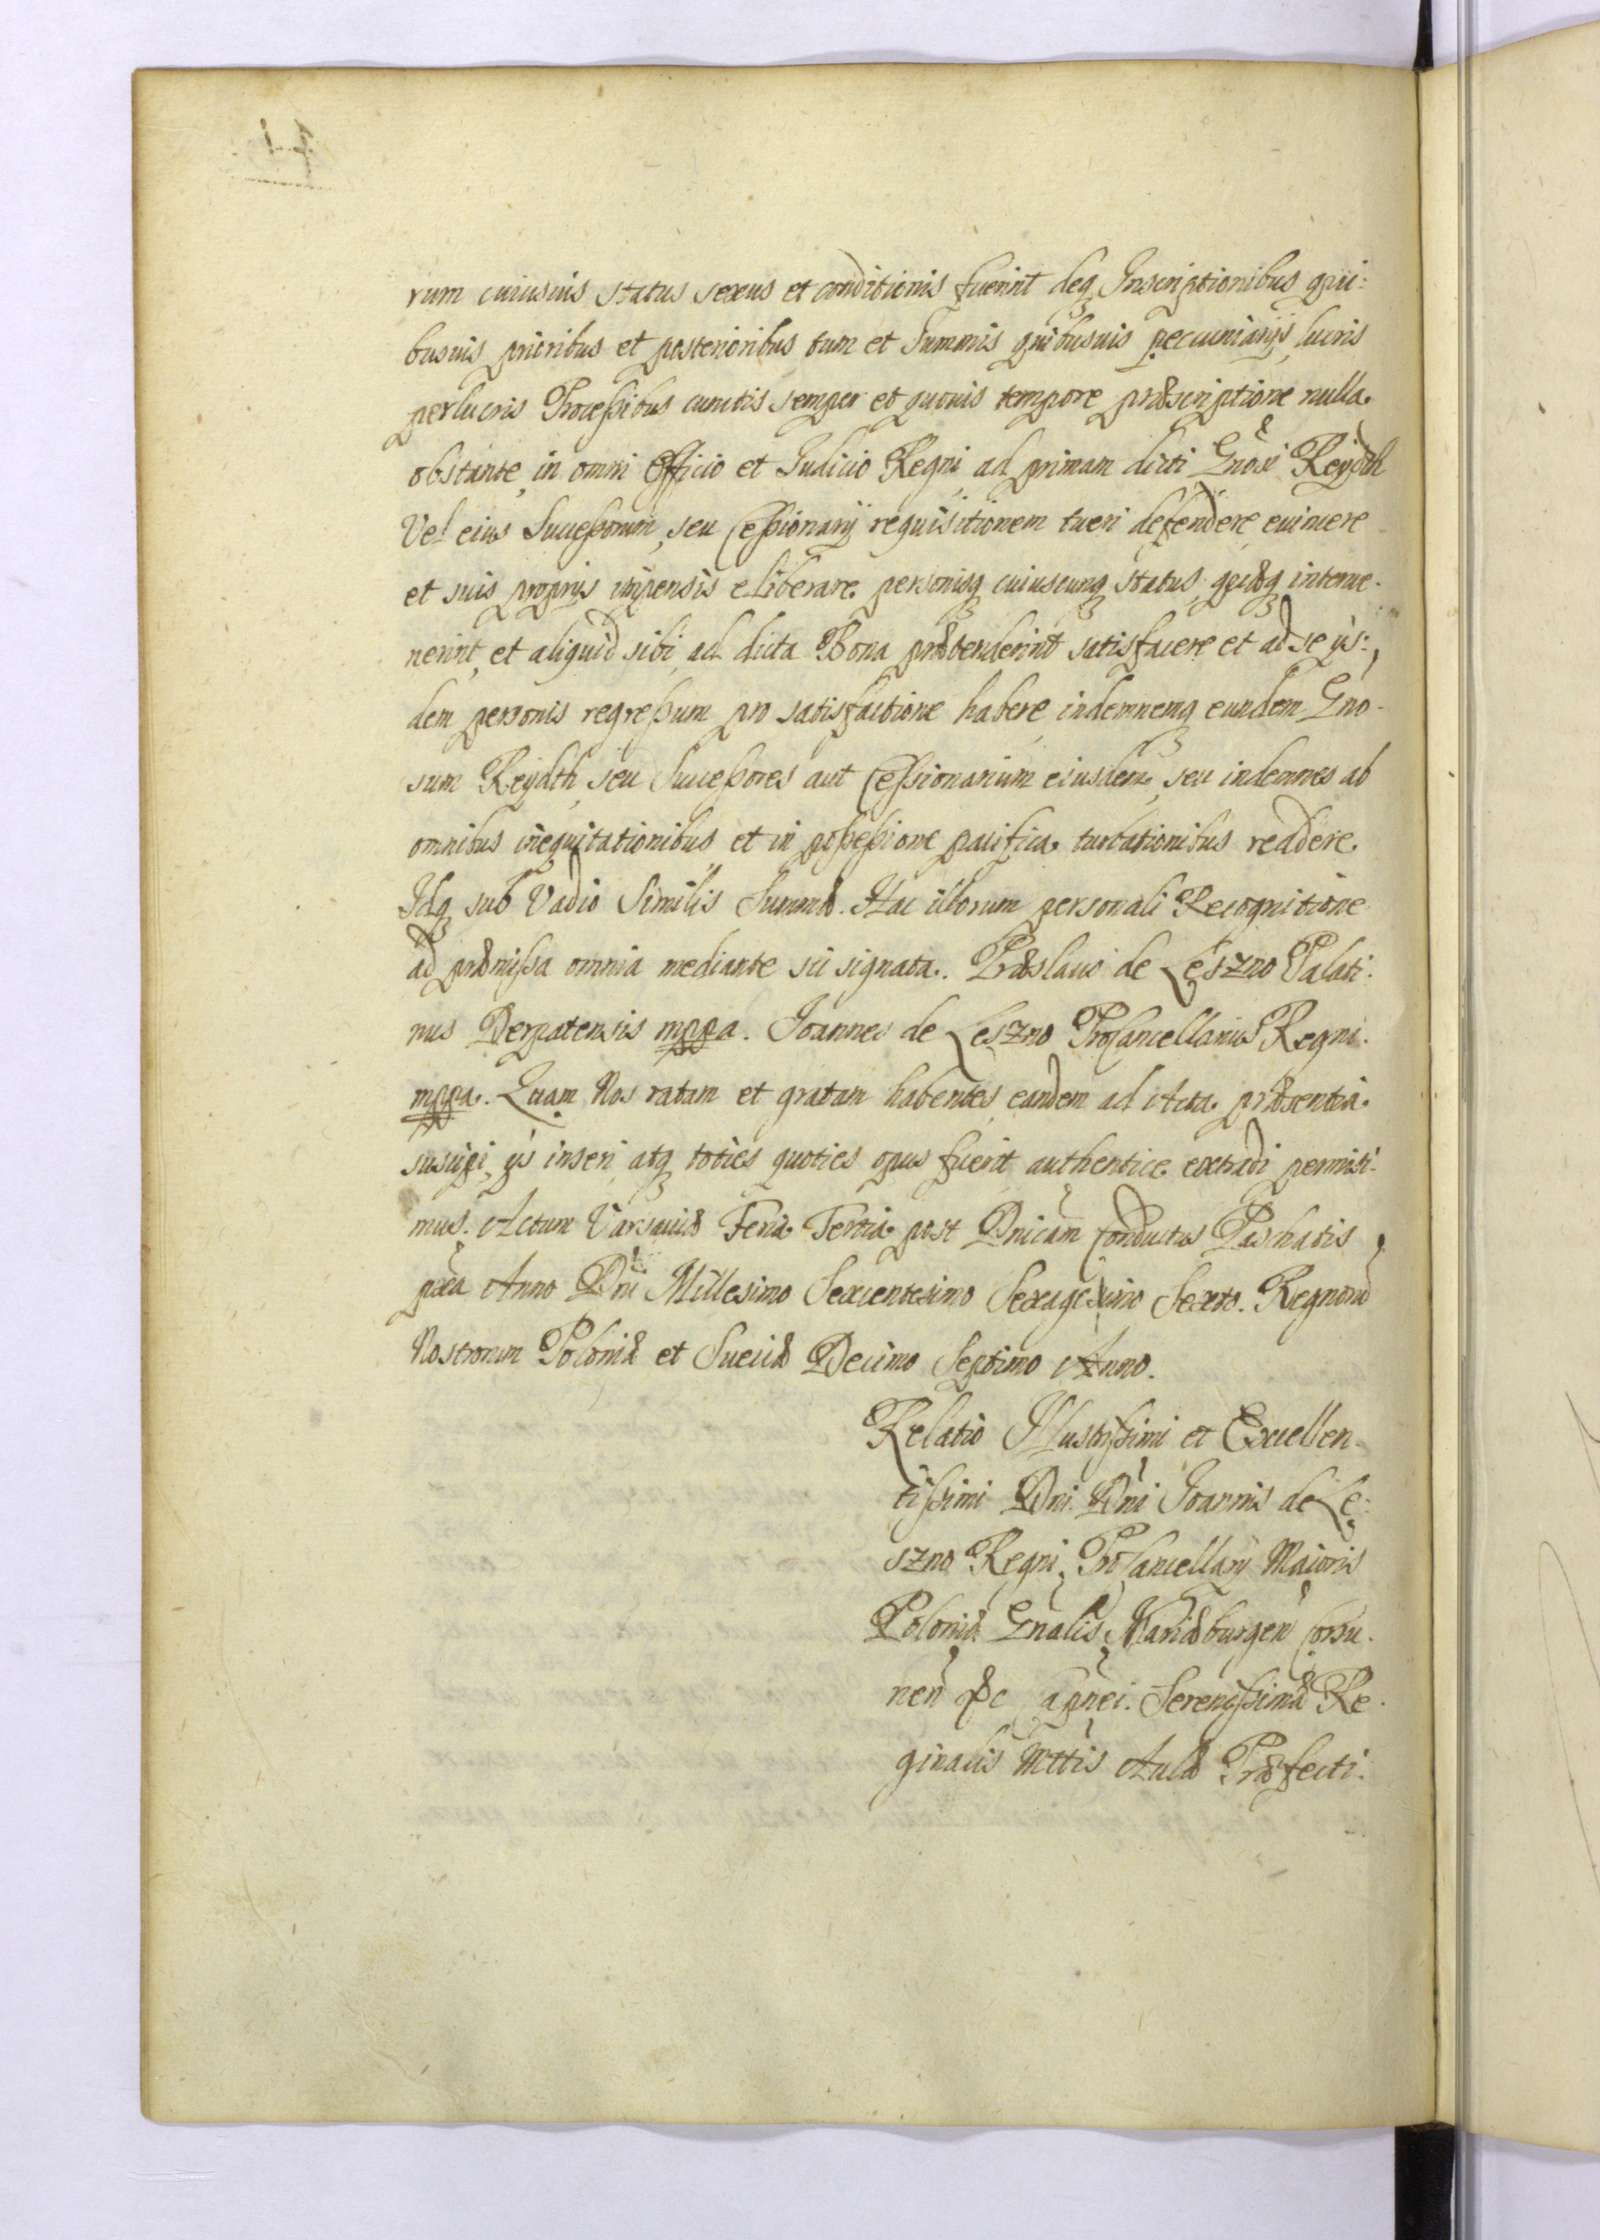 rum cuiusuis status sexus et conditionis fuerint deq Inscriptionibus qui:
busuis prioribus et posterioribus tum et Summis quibusuis pecuniarijs, lucris
perlucris Processibus cunctis semper et quouis tempore præscriptione nulla
obstante, in omni Officio et Iudicio Regni, ad primam dicti Gnosi Reydth
Vel eius Successorum, seu Cessionarij requisitionem tueri defendere, euincere
et suis proprijs impensis eliberare personisq cuiuscunq status, interue-
nerint, et aliquid sibi, ad dicta Bona prætenderint satisfacere et ad se ijs:
dem personis regressum pro satisfactione habere, indemnemq eundem Gno-
sum Reydth, seu Successores aut Cessionarium eiusdem, seu indemnes ab
omnibus inequitationibus et in possessione pacifica turbationibus reddere.
Idq sub Vadio Similis Summæ. Hac illorum personali Recognitione
ad præmissa omnia mediante sic signata. Præslaus de Leszno Palati:
nus Derpatensis mppa. Joannes de Leszno Procancellarius Regni.
mppa. Quam Nos ratam et gratam habentes, eandem ad Acta præsentia
suscipi, ijs inseri, atq toties quoties opus fuerit authentice extradi permisi-
mus. Actum Varsauiæ Feria Tertia post Dnicam Conductus Paschatis
pxa Anno Dni Millesimo Sexcentesimo Sexagesimo Sexto. Regnorū
Nostrorum Poloniæ et Sueciæ Decimo Septimo Anno.
Relatio Illustrissimi et Excellen-
tissimi Dni Dni Joannis de Le:
szno Regni Procancellarij Maioris
Poloniæ Gnalis, Mariæburgen Corsu-
nen &c Serenissimæ Re-
ginalis Mttis Aulæ Præfecti.